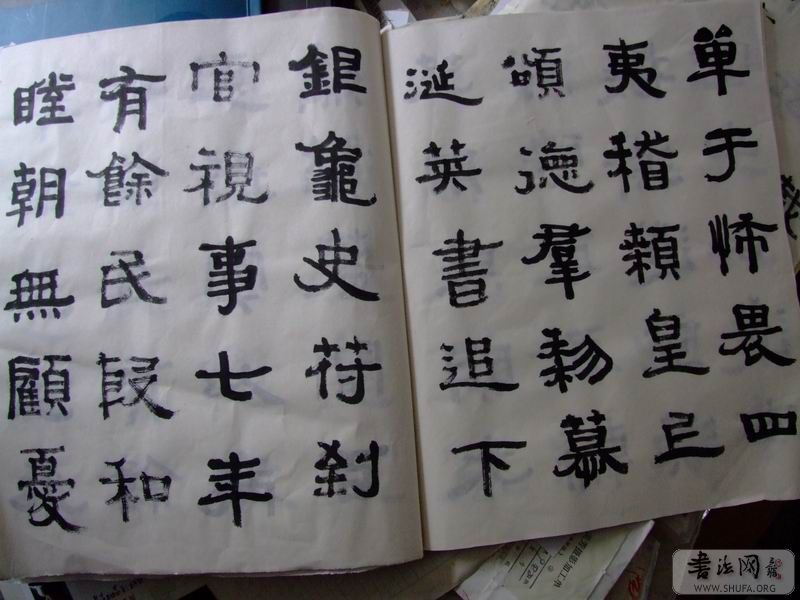 单于怖畏四
夷稽顙皇上
頌德羣黎慕
涎策書追下
銀龜史符剖
官視事七年
有餘民殷和
睦朝無顧憂
书法网
WWW.SHUFA.ORG